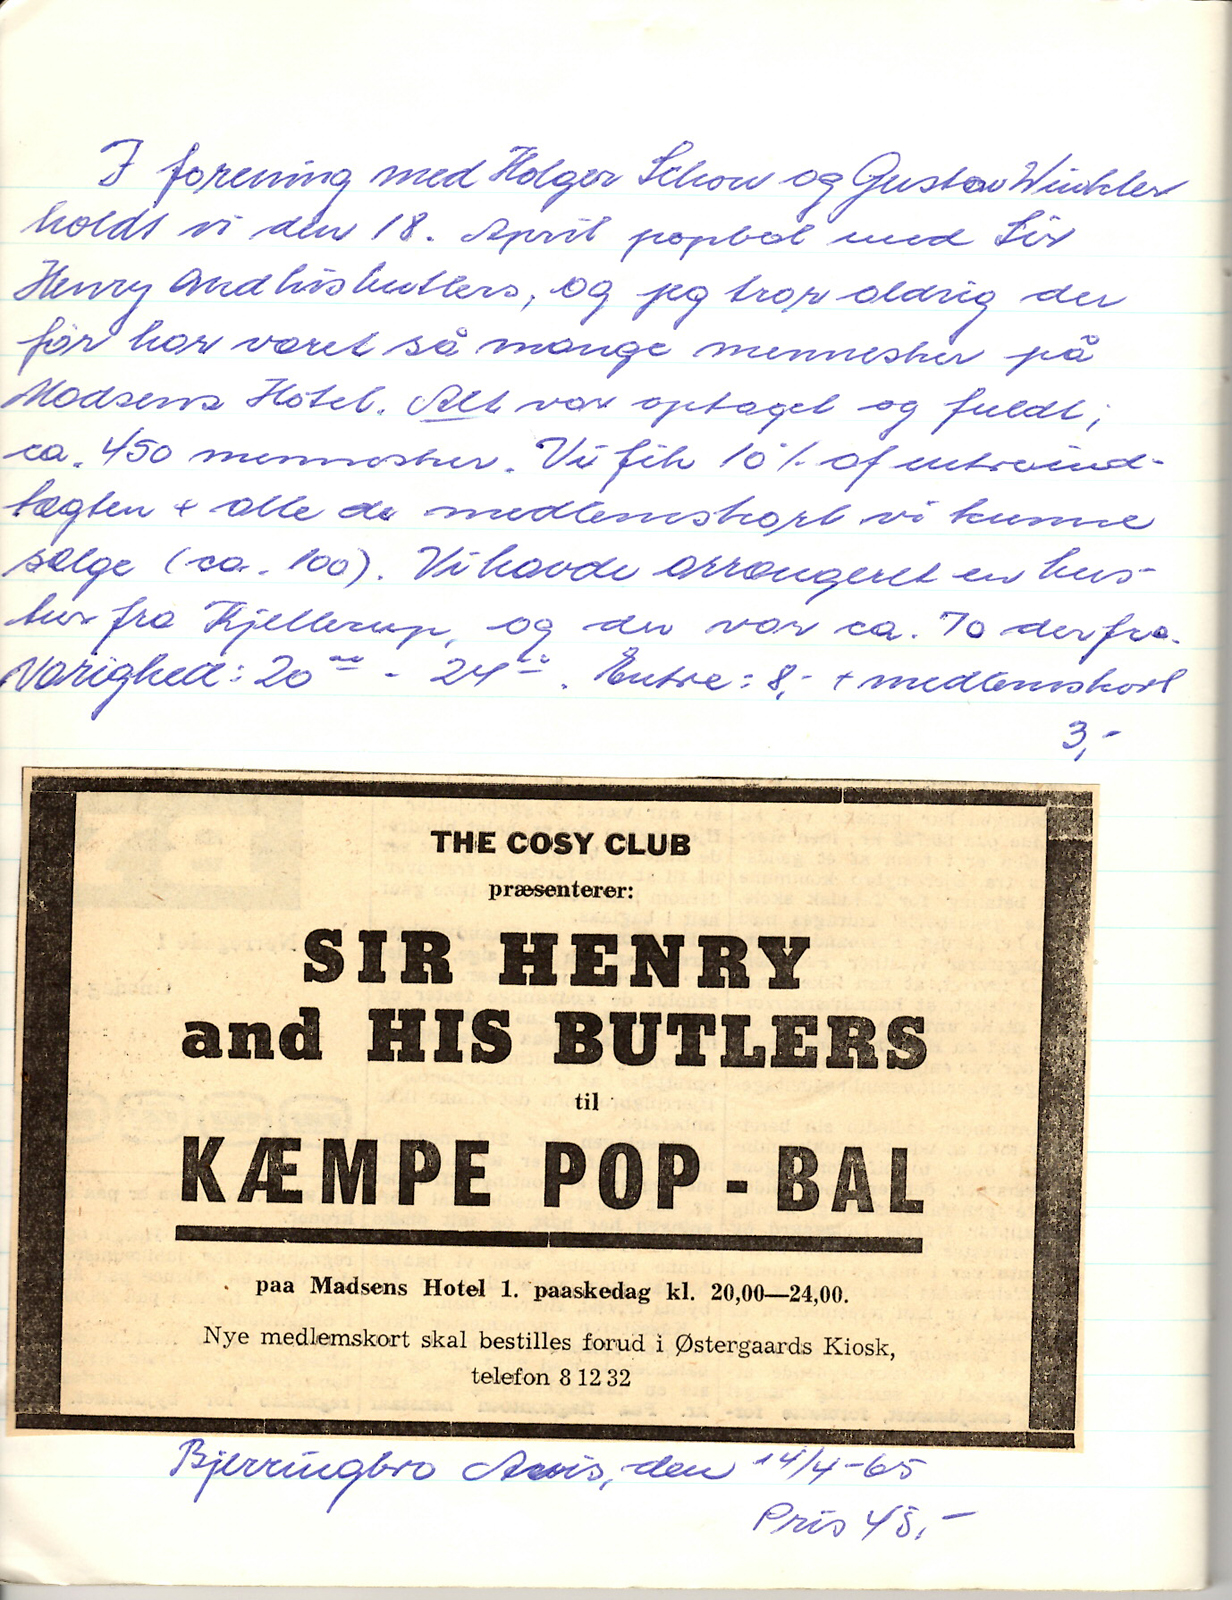 I forening med Holger Schou og Gustav Winkler
holdt vi den 18. April popbal med Sir
Henry and his butlers, og jeg tror aldrig der
før har været så mange mennesker på
Madsens Hotel. Alt var optaget og fuldt;
ca. 450 mennesker. Vi fik 10% af entréind-
tægten + alle de medlemskort vi kunne
sælge (ca. 100). Vi havde arrangeret en bus-
tur fra Kjellerup, og der var ca. 70 derfra.
Varighed: 20⁰⁰ - 24⁰⁰. Entre: 8,- + medlemskort
3,-
THE COSY CLUB
præsenterer:
SIR HENRY
and HIS BUTLERS
til
KÆMPE POP - BAL
paa Madsens Hotel 1. paaskedag kl. 20,00—24,00.
Nye medlemskort skal bestilles forud i Østergaards Kiosk,
telefon 8 12 32
Bjerringbro Avis, den 14/4-65
Pris 48,-